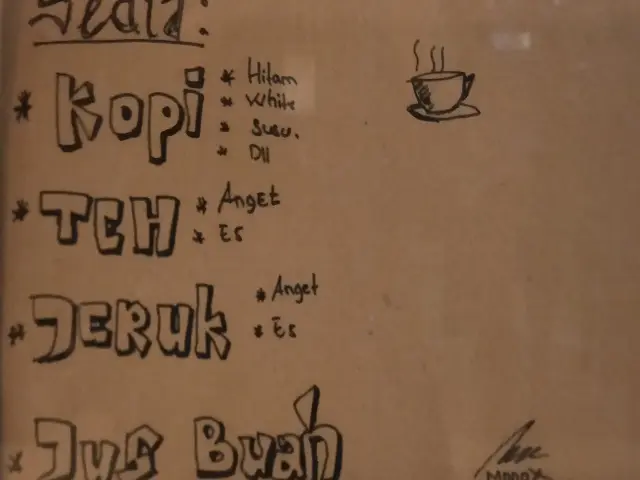 Sedia:
* Kopi * Hitam
* White
* Susu.
* Dll
* TEH * Anget
* Es
* JERuk * Anget
* Es
* Jus Buah